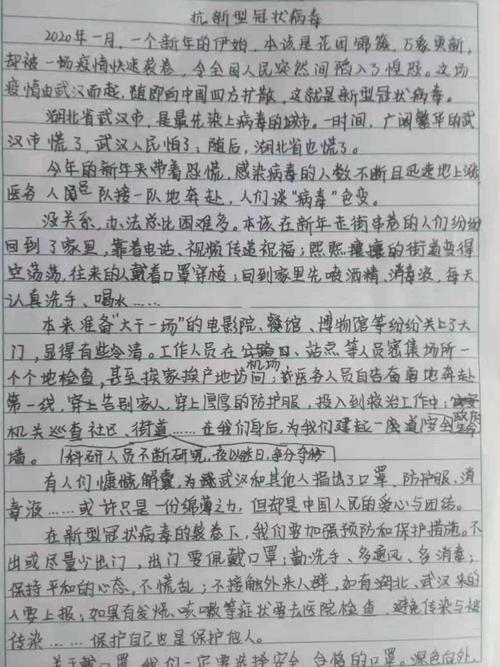 抗新型冠状病毒
2020年一月,一个新年的伊始,本该是花团锦簇,万象更新,
却被一场疫情快速袭卷,令全国人民突然间陷入了惶恐。这场
疫情由武汉而起,随即向中国四方扩散,这就是新型冠状病毒。
湖北省武汉市,是最先染上病毒的城市。一时间,广阔繁华的武
汉市慌了,武汉人民怕了;随后,湖北省也慌了。
今年的新年夹带着恐慌,感染病毒的人数不断且迅速地上涨,
医务人员一队接一队地奔赴,人们谈“病毒”色变。
没关系,办法总比困难多。本该在新年走街串巷的人们纷纷
回到了家里,靠着电话、视频传递祝福;熙熙攘攘的街道变得
空荡荡,往来的人戴着口罩穿梭;回到家里先喷酒精、消毒液,每天
认真洗手、喝水……
本来准备“大干一场”的电影院、餐馆、博物馆等纷纷关上了大
门,显得有些冷清。工作人员在公路口、站点、机场等人员密集场所一
个个地检查,甚至挨家挨户地访问;我医务人员自告奋勇地奔赴
第一线,穿上告别家人、穿上厚厚的防护服,投入到救治工作中;政府
机关巡查社区、街道……在我们身后,为我们建起一座道安全生命
墙。科研人员不断研究,夜以继日,每分夺秒
有人们慷慨解囊,为武汉和其他人捐出了口罩,防护服、消
毒液……或许只是一份绵薄之力,但却是中国人民的爱心与团结。
在新型冠状病毒的袭卷下,我们要加强预防和保护措施。不
出或尽量少出门,出门要佩戴口罩;勤洗手、多通风、多消毒;
保持平和的心态,不慌乱;不接触外来人群,如有湖北、武汉来的
人要上报;如果有发烧、咳嗽等症状要去医院检查,避免传染与被
传染……保护自己也是保护他人。
关于戴口罩,我们一定要选择安全、合格的口罩,深色向外,